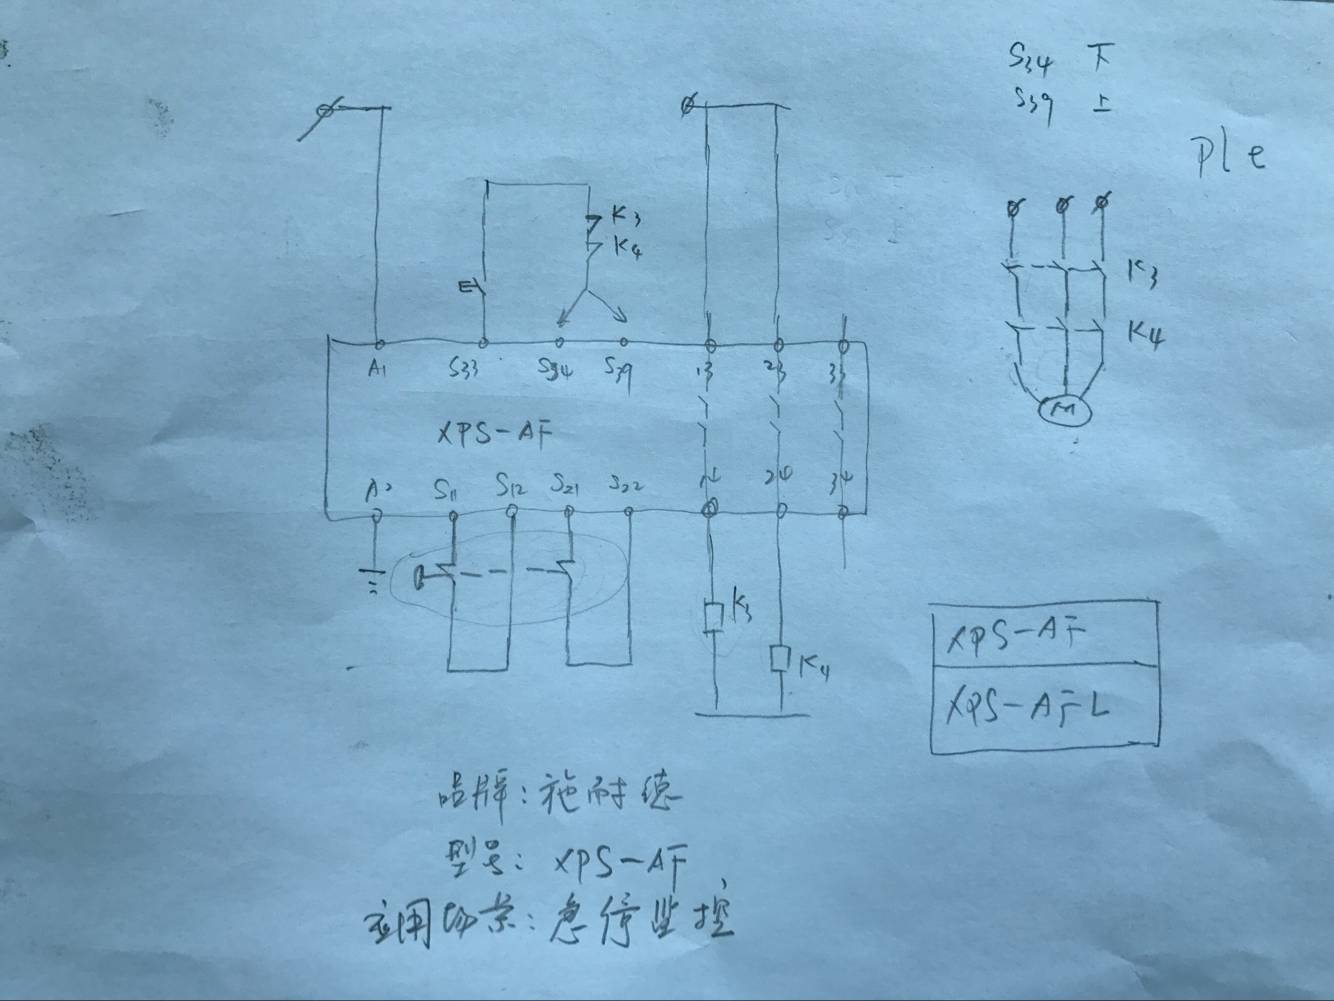 S34 下
S39 上
Ple
K3
K4
K3
K4
M
A1 S33 S34 S39 13 23 33
XPS-AF
A2 S11 S12 S21 S22 14 24 34
K3
K4
XPS-AF
XPS-AFL
品牌：施耐德
型号：XPS-AF
应用场景：急停监控